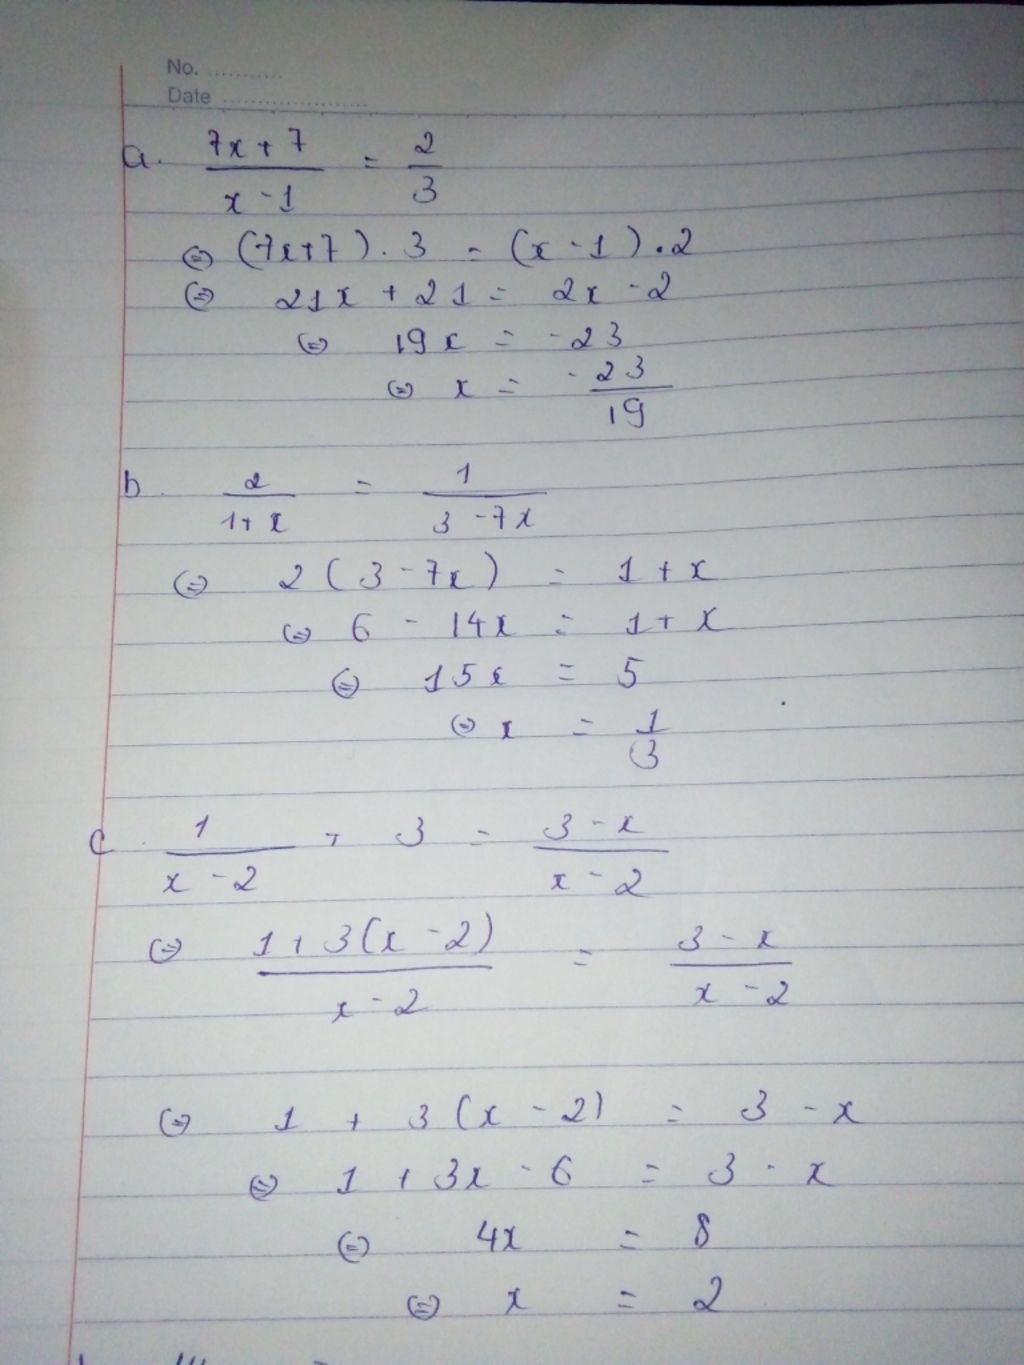 No. ...........
Date .....................
a. (7x+7)/(x-1) = 2/3
⇔ (7x+7).3 = (x-1).2
⇔ 21x + 21 = 2x - 2
⇔ 19x = -23
⇔ x = -23/19
b. 2/(1+x) = 1/(3-7x)
⇔ 2(3-7x) = 1+x
⇔ 6 - 14x = 1+x
⇔ 15x = 5
⇔ x = 1/3
c. 1/(x-2) + 3 = (3-x)/(x-2)
⇔ (1+3(x-2))/(x-2) = (3-x)/(x-2)
⇔ 1 + 3(x-2) = 3-x
⇔ 1 + 3x - 6 = 3 - x
⇔ 4x = 8
⇔ x = 2